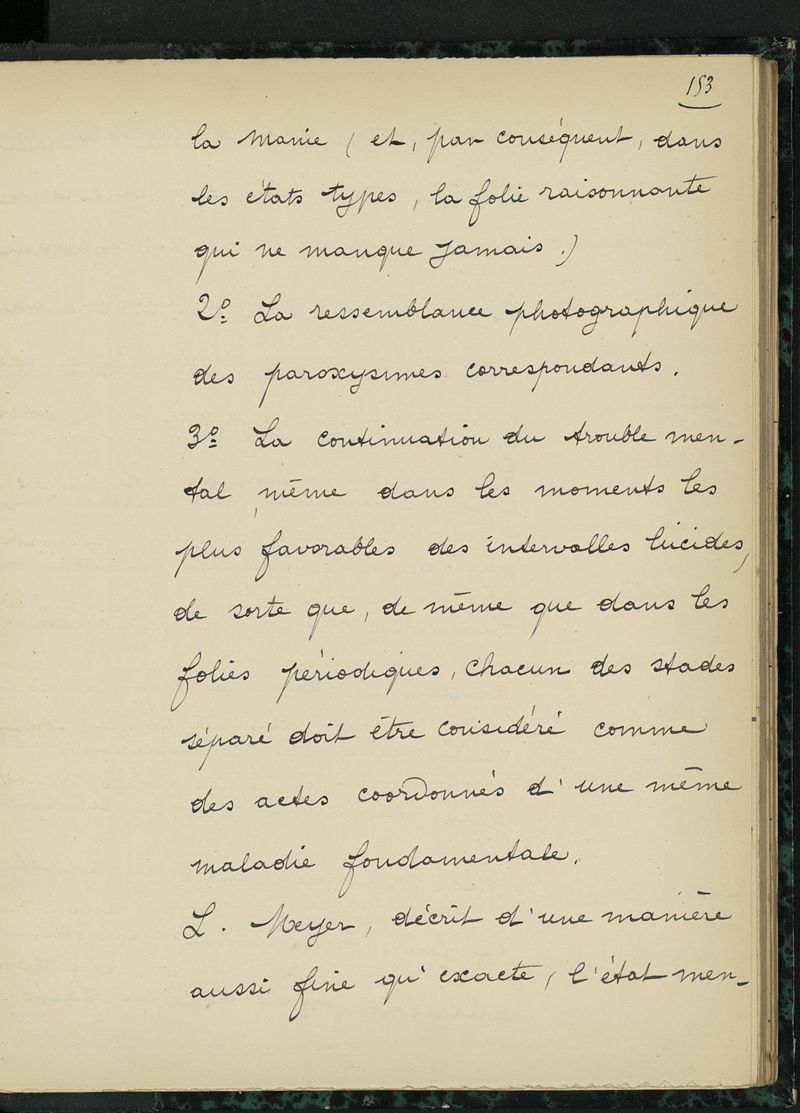 153
la manie (et, par conséquent, dans
les états types, la folie raisonnante
qui ne manque jamais.)
2º La ressemblance photographique
des paroxysmes correspondants.
3º La continuation du trouble men-
tal, même dans les moments les
plus favorables des intervalles lucides,
de sorte que, de même que dans les
folies périodiques, chacun des stades
séparé doit être considéré comme
des actes coordonnés d'une même
maladie fondamentale.
L. Meyer, décrit d'une manière
aussi fine qu'exacte, l'état men-